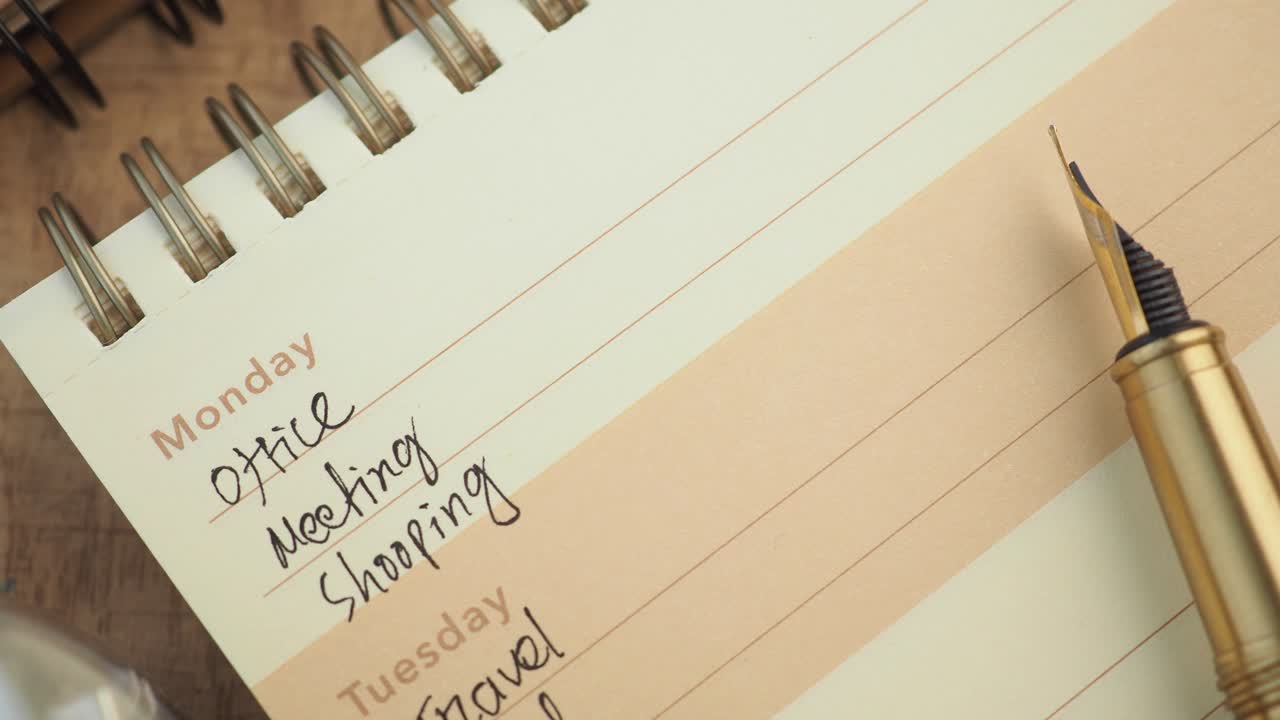 Monday
Office
Meeting
Shopping
Tuesday
Travel